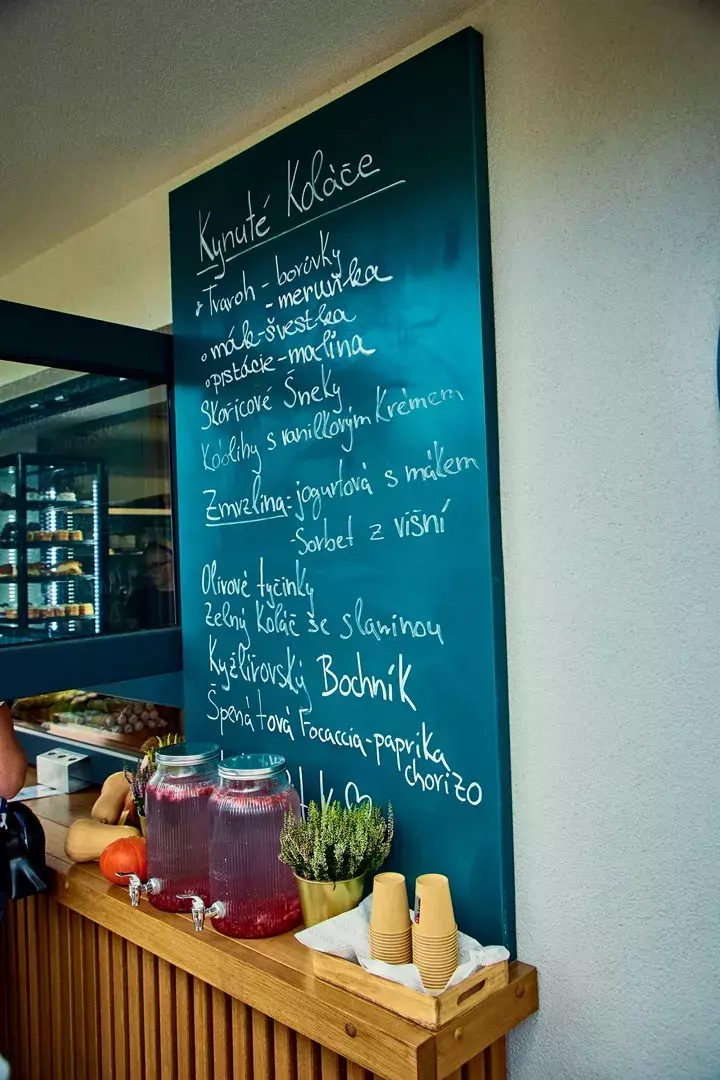 Kynuté Koláče
Tvaroh - borůvky
- meruňka
mák-švestka
pistácie-malina
Skořicové Šneky
Koblihy s vanilkovým Krémem
Zmrzlina:-jogurtová s mákem
-Sorbet z višní
Olivové tyčinky
Zelný Koláč se slaninou
Kyžlířovský Bochník
Špenátová Focaccia-paprika
chorizo